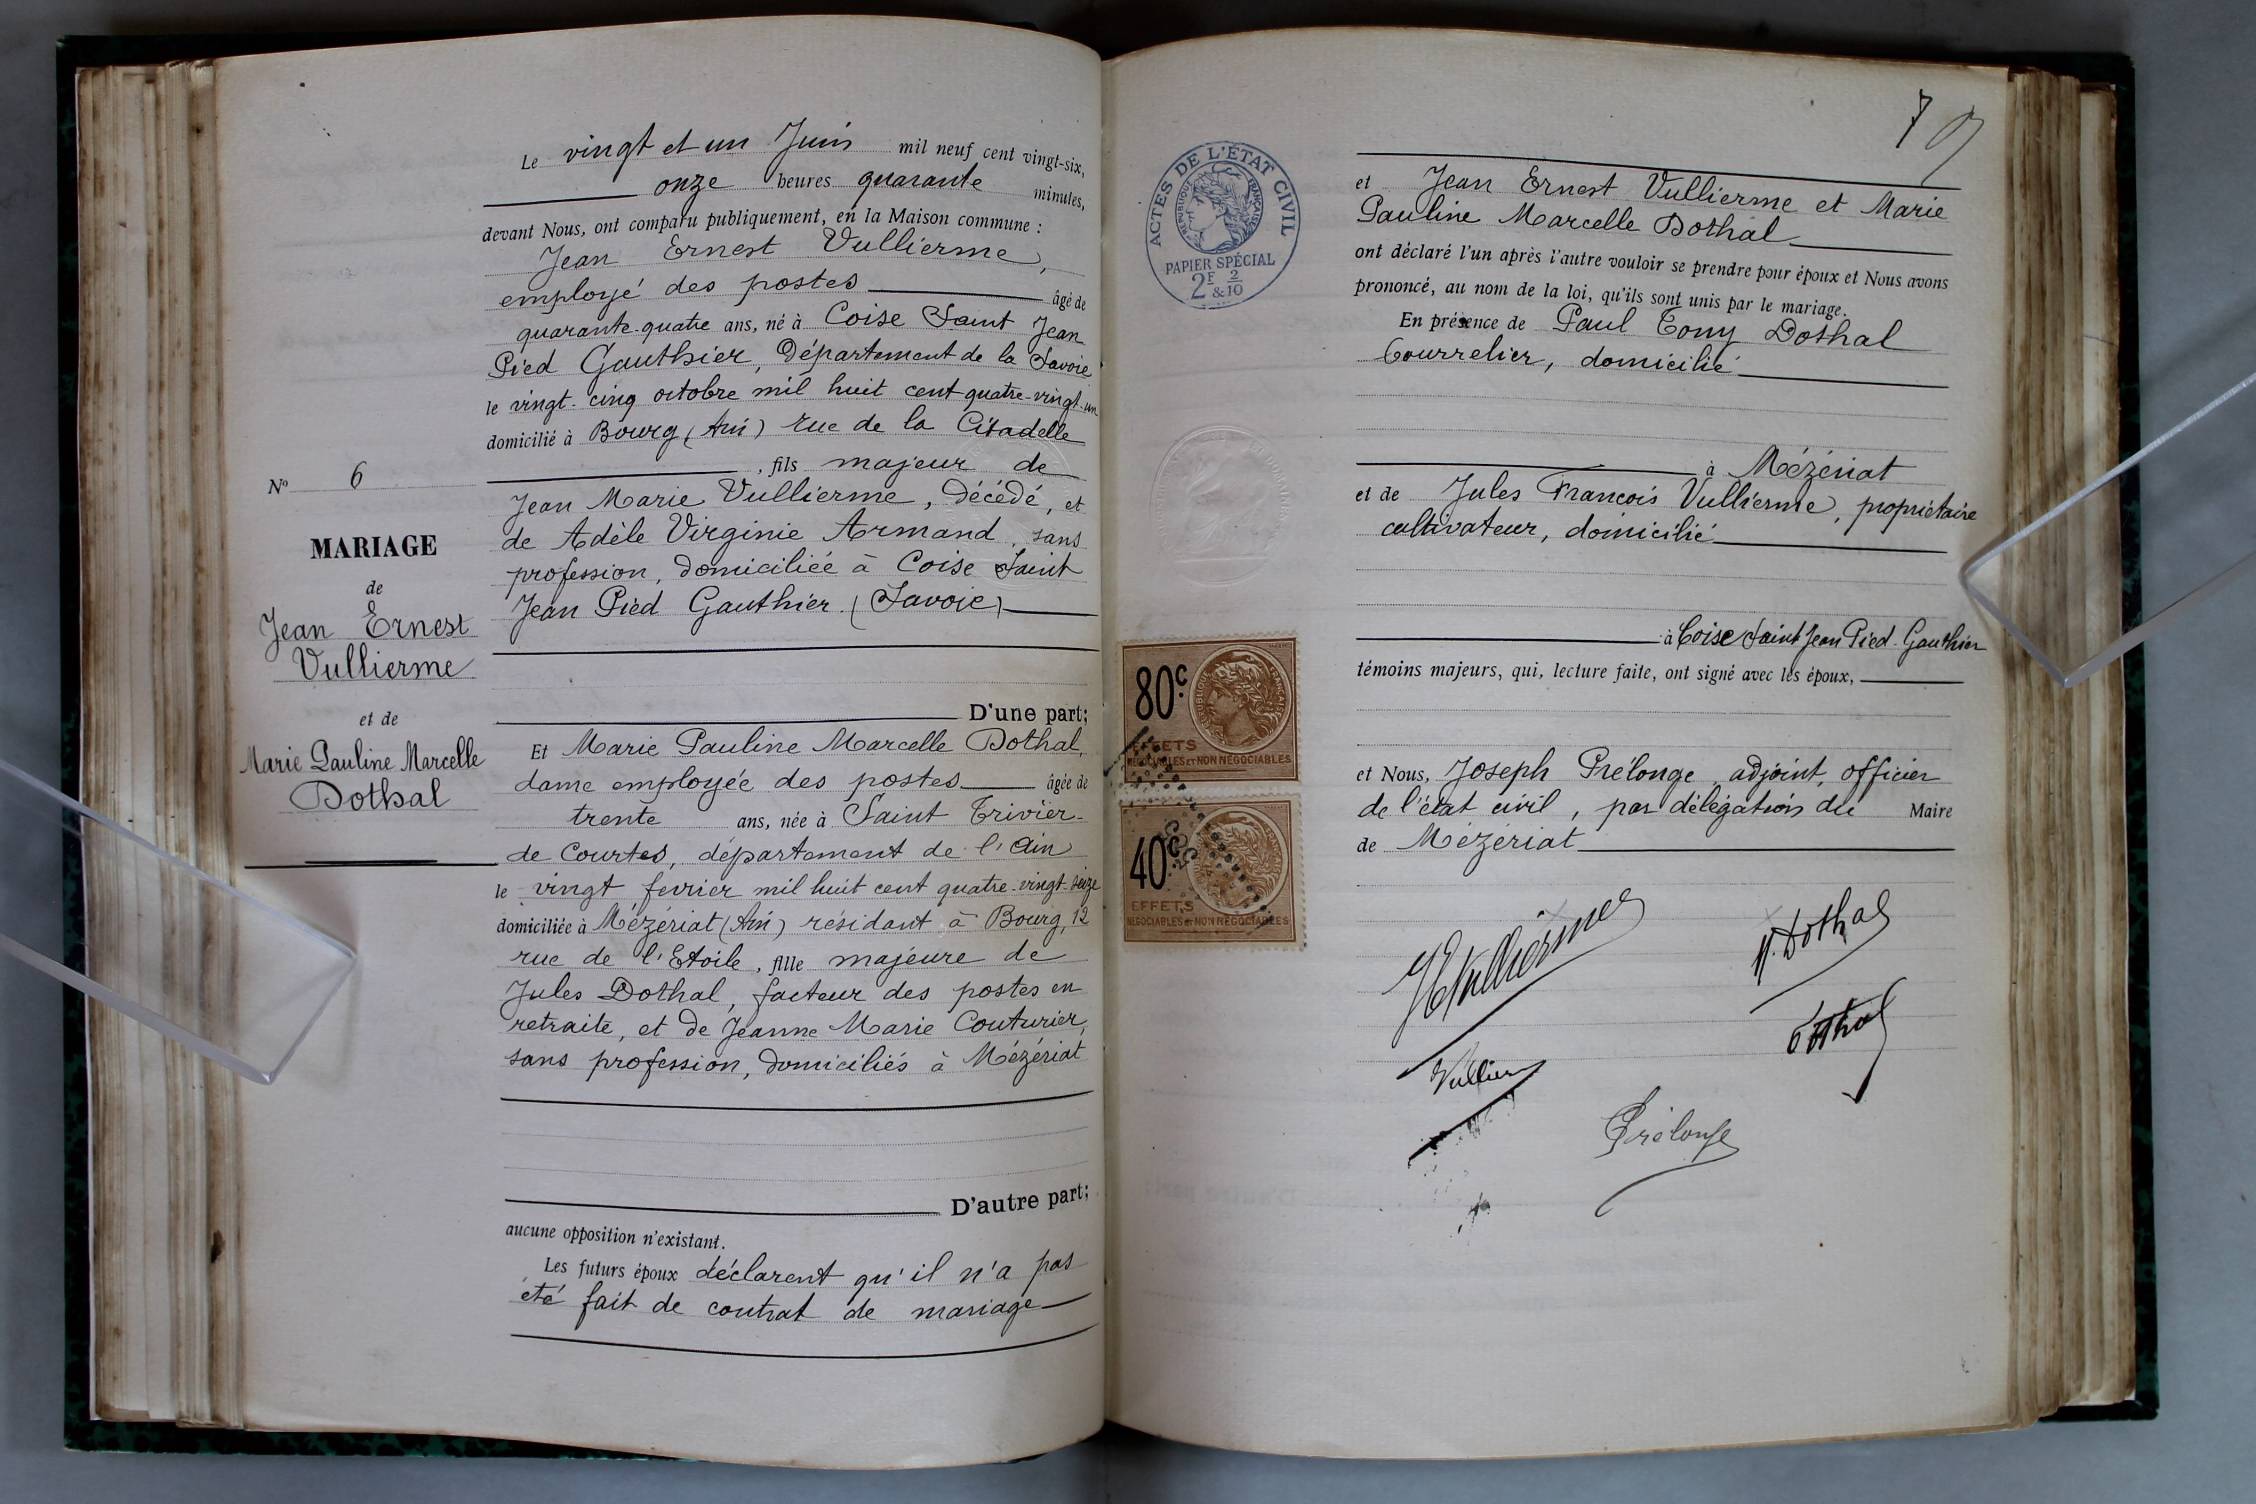 Le vingt et un Juin mil neuf cent vingt-six,
onze heures quarante minutes,
devant Nous, ont comparu publiquement, en la Maison commune :
Jean Ernest Vullierme,
employé des postes âgé de
quarante-quatre ans, né à Coise Saint Jean
Pied Gauthier, Département de la Savoie
le vingt-cinq octobre mil huit cent quatre-vingt-un
domicilié à Bourg (Ain) rue de la Citadelle
, fils majeur de
Jean Marie Vullierme, décédé, et
de Adèle Virginie Armand, sans
profession, domiciliée à Coise Saint
Jean Pied Gauthier. (Savoie)
D'une part;
Et Marie Pauline Marcelle Dothal,
dame employée des postes âgée de
trente ans, née à Saint Trivier-
de Courtes, département de l'Ain
le vingt février mil huit cent quatre-vingt-seize
domiciliée à Mézériat (Ain) résidant à Bourg, 12
rue de l'Etoile, fille majeure de
Jules Dothal, facteur des postes en
retraite, et de Jeanne Marie Couturier,
sans profession, domiciliés à Mézériat
D'autre part;
aucune opposition n'existant.
Les futurs époux déclarent qu'il n'a pas
été fait de contrat de mariage
No 6
MARIAGE
de
Jean Ernest
Vullierme
et de
Marie Pauline Marcelle
Dothal
ACTES DE L'ÉTAT CIVIL
RÉPUBLIQUE FRANÇAISE
PAPIER SPÉCIAL
2F 2
& 10
80c
EFFETS
NÉGOCIABLES ET NON NÉGOCIABLES
40c
EFFETS
NÉGOCIABLES ET NON NÉGOCIABLES
7
et Jean Ernest Vullierme et Marie
Pauline Marcelle Dothal
ont déclaré l'un après l'autre vouloir se prendre pour époux et Nous avons
prononcé, au nom de la loi, qu'ils sont unis par le mariage.
En présence de Paul Tony Dothal
Bourrelier, domicilié
à Mézériat
et de Jules François Vullierme, propriétaire
cultivateur, domicilié
à Coise Saint Jean Pied-Gauthier
témoins majeurs, qui, lecture faite, ont signé avec les époux,
et Nous, Joseph Prélonge, adjoint, officier
de l'état civil, par délégation du Maire
de Mézériat
JEVullierme
M. Dothal
Dothal
Vullierm
Prélonge